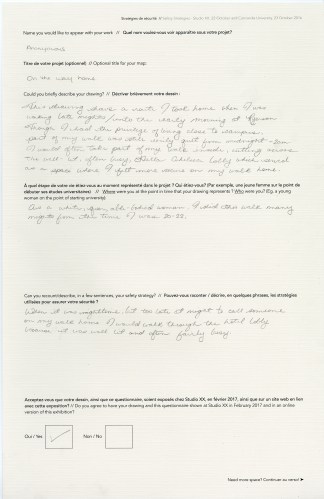 Name you would like to appear with your work // Quel nom voulez-vous voir apparaître sous votre projet?
Anonymous
Titre de votre projet (optionnel) // Optional title for your map:
On the way home
Could you briefly describe your drawing? // Décriver brièvement votre dessin :
drawing shows a route I took home when I was
late nights / into the early morning at
though I had the privilege of being close to campus
part of my walk was
I would often take part of my walk inside, cutting
the well-lit, often busy, Hotel lobby which served
as a space where I felt more secure on my walk home.
À quel étape de votre vie étiez-vous au moment représenté dans le projet ? Qui étiez-vous? (Par exemple, une jeune femme sur le point de
débuter ses études universitaires) // Where were you at the point in time that your drawing represents? Who were you? (E.g. a young
woman on the point of starting university).
As a white, able bodied woman. I did this walk many
nights from the time I was 20-22.
Can you recount/describe, in a few sentences, your safety strategy? // Pouvez-vous raconter / décrire, en quelques phrases, les stratégies
utilisées pour assurer votre sécurité ?
When it was nighttime, but too late at night to call someone
on my walk home I would walk through the hotel lobby
because it was well lit and often fairly busy.
Acceptez-vous que votre dessin, ainsi que ce questionnaire, soient exposés chez Studio XX, en février 2017, ainsi que sur un site web en lien
avec cette exposition? // Do you agree to have your drawing and this questionnaire shown at Studio XX in February 2017 and in an online
version of this exhibition?
Oui / Yes Non / No
Need more space? Continue au verso ►